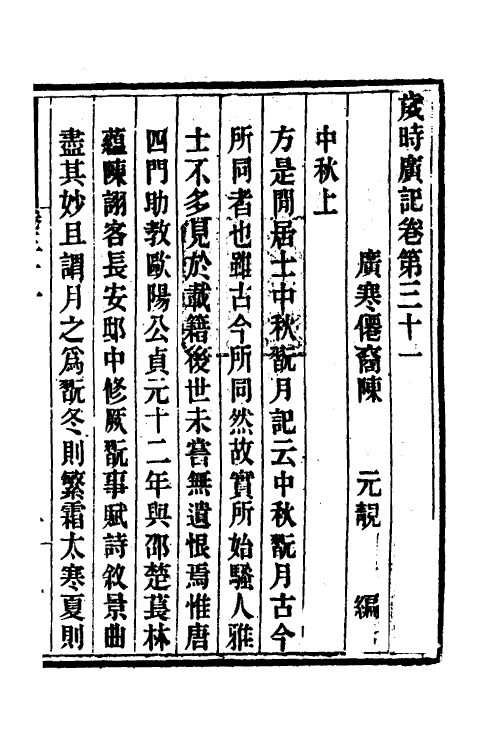 歲時廣記卷第三十一
廣寒僊裔陳 元靚 編
中秋上
方是閒居士中秋翫月記云中秋翫月古今
所同者也雖古今所同然故實所始騷人雅
士不多見於載籍後世未嘗無遺恨焉惟唐
四門助教歐陽公貞元十二年與邵楚萇林
蘊陳詡客長安邸中修厥翫事賦詩敘景曲
盡其妙且謂月之為翫冬則繁霜太寒夏則